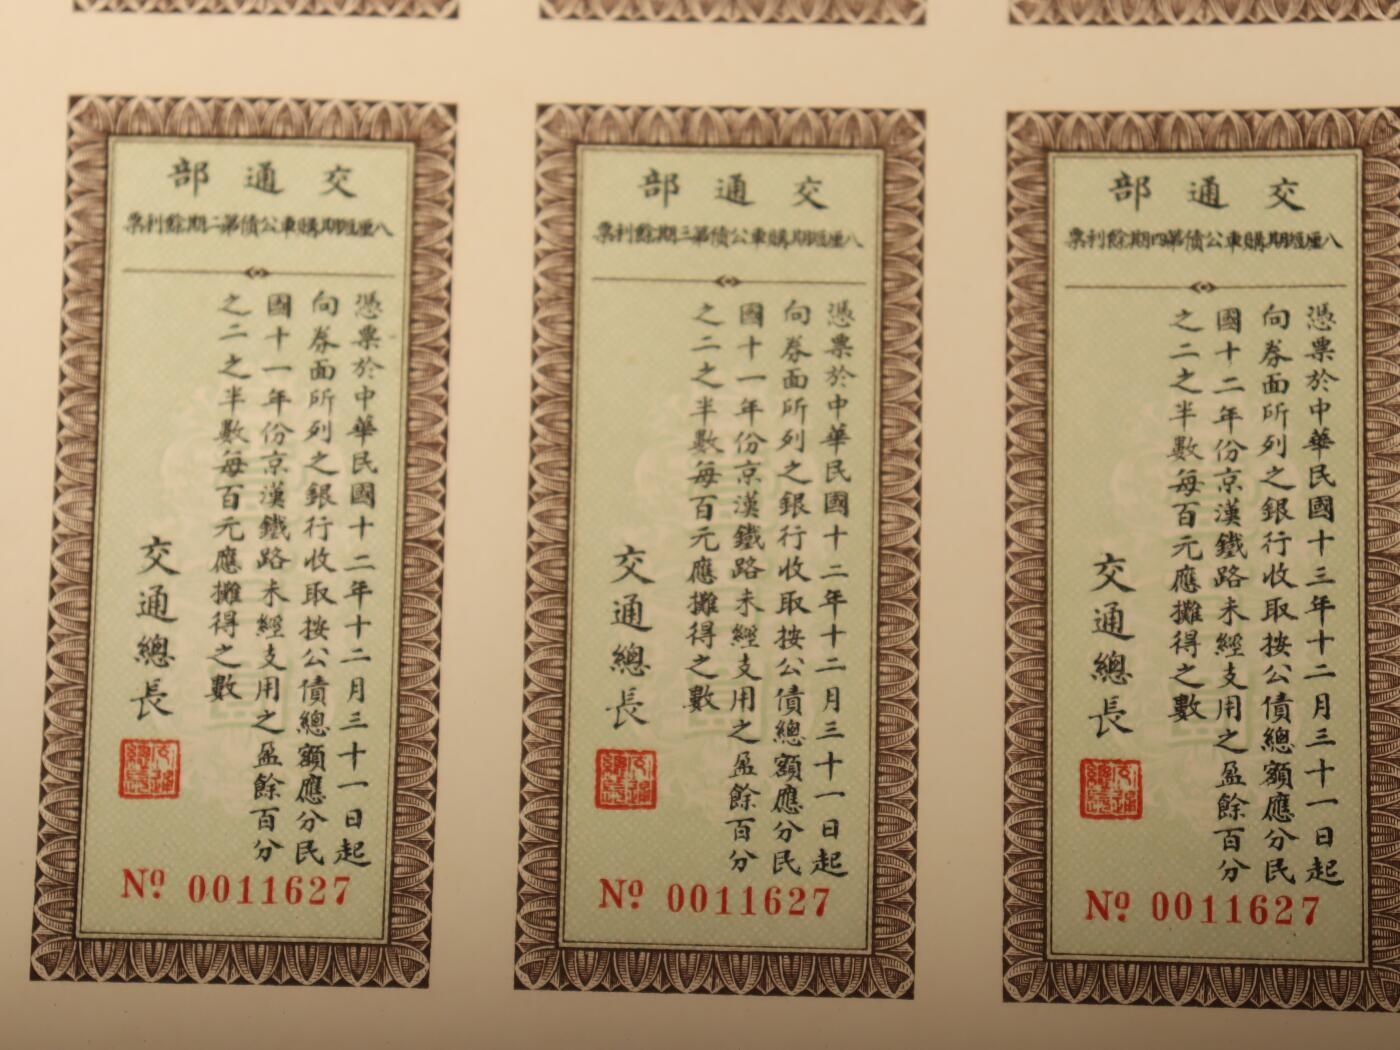 交通部
八厘短期購車公債第二期餘利票
憑票於中華民國十二年十二月三十一日起
向券面所列之銀行收取按公債總額應分民
國十一年份京漢鐵路未經支用之盈餘百分
之二之半數每百元應攤得之數
交通總長
交通
總長
Nº 0011627
交通部
八厘短期購車公債第三期餘利票
憑票於中華民國十二年十二月三十一日起
向券面所列之銀行收取按公債總額應分民
國十一年份京漢鐵路未經支用之盈餘百分
之二之半數每百元應攤得之數
交通總長
交通
總長
Nº 0011627
交通部
八厘短期購車公債第四期餘利票
憑票於中華民國十三年十二月三十一日起
向券面所列之銀行收取按公債總額應分民
國十二年份京漢鐵路未經支用之盈餘百分
之二之半數每百元應攤得之數
交通總長
交通
總長
Nº 0011627